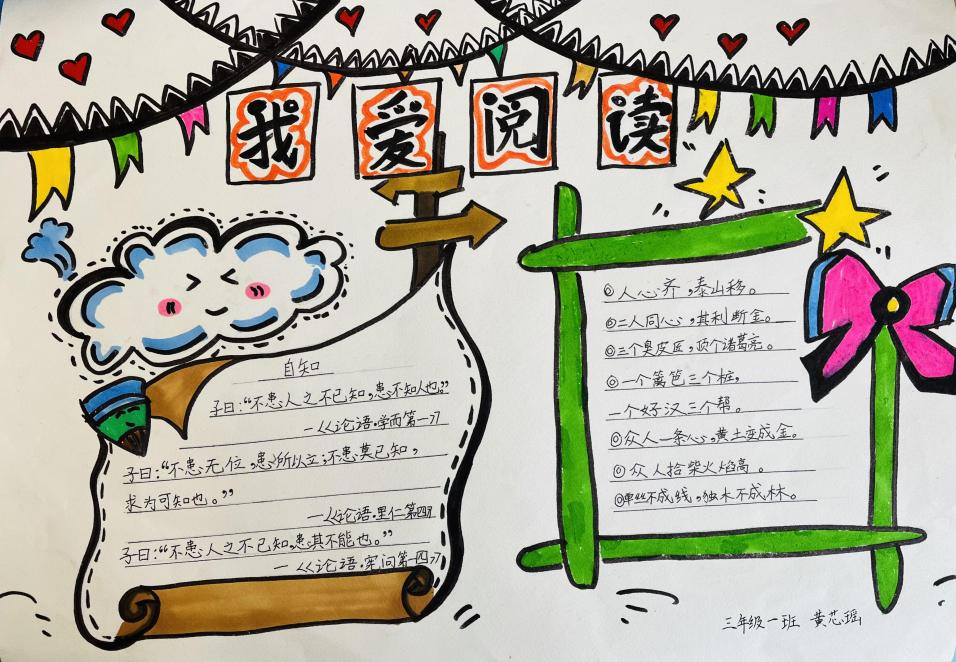 我爱阅读
自知
子曰:“不患人之不已知,患不知人也。”
—《论语·学而第一》
子曰:“不患无位,患所以立;不患莫已知,
求为可知也。”
—《论语·里仁第四》
子曰:“不患人之不已知,患其不能也。”
—《论语·宪问第一四》
◎人心齐,泰山移。
◎二人同心,其利断金。
◎三个臭皮匠,顶个诸葛亮。
◎一个篱笆三个桩,
一个好汉三个帮。
◎众人一条心,黄土变成金。
◎众人拾柴火焰高。
◎单丝不成线,独木不成林。
三年级一班 黄芯瑶